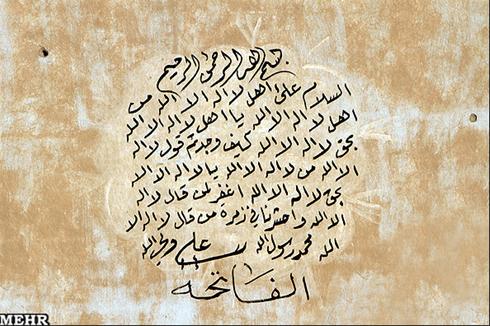 بسم الله الرحمن الرحيم
السلام على اهل لا اله الا الله من
اهل لا اله الا الله يا اهل لا اله الا الله
بحق لا اله الا الله كيف وجدتم قول لا اله
الا الله من لا اله الا الله يا لا اله الا الله
بحق لا اله الا الله اغفر لمن قال لا اله
الا الله واحشرنا في زمرة من قال لا اله الا
الله محمد رسول الله علي ولي الله
الفاتحه
MEHR